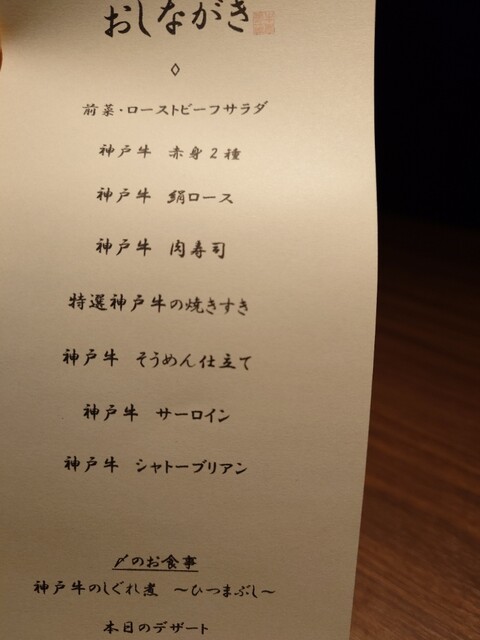 おしながき
◇
前菜・ローストビーフサラダ
神戸牛 赤身2種
神戸牛 絹ロース
神戸牛 肉寿司
特選神戸牛の焼きすき
神戸牛 そうめん仕立て
神戸牛 サーロイン
神戸牛 シャトーブリアン
〆のお食事
神戸牛のしぐれ煮 〜ひつまぶし〜
本日のデザート